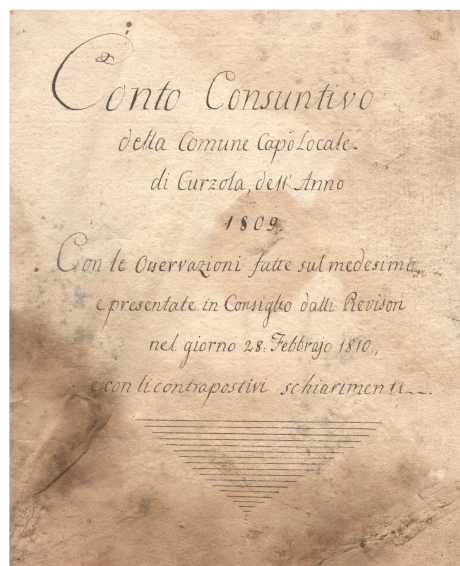 Conto Consuntivo
della Comune Capo Locale
di Curzola, dell' Anno
1809
Con le Osservazioni fatte sul medesimo,
e presentate in Consiglio dalli Revisori
nel giorno 28: Febbrajo 1810.,
e con li contrapostivi schiarimenti